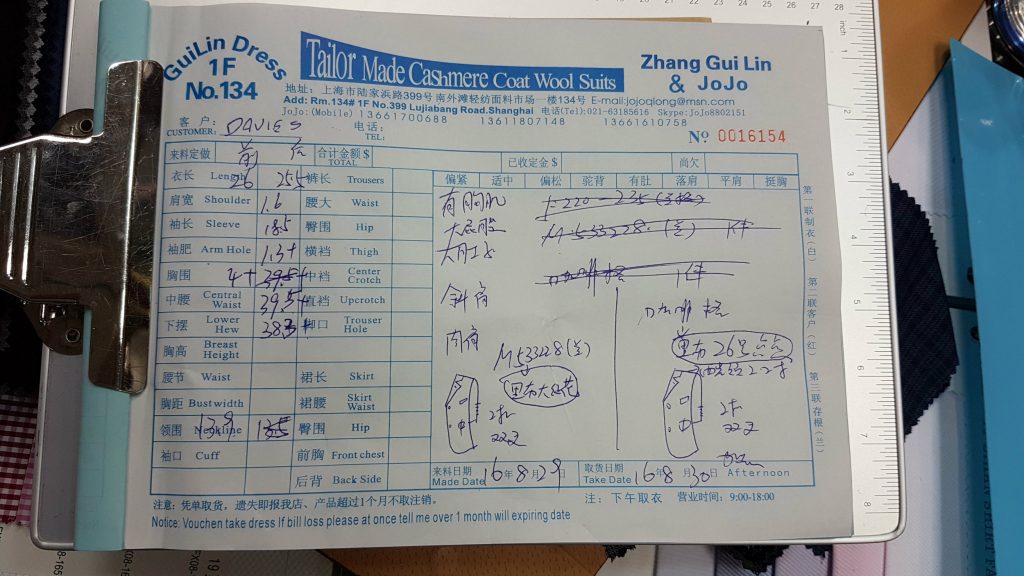 GuiLin Dress
1F
No.134
Tailor Made Cashmere Coat Wool Suits
Zhang Gui Lin
& JoJo
地址：上海市陆家浜路399号 南外滩轻纺面料市场一楼134号 E-mail:jojoqiong@msn.com
Add: Rm.134# 1F No.399 Lujiabang Road.Shanghai 电话(Tel):021-63185616 Skype:JoJo8802151
JoJo:(Mobile) 13661700688 13611807148 13661610758
客户: CUSTOMER: DAVIES
电话: TEL:
No 0016154
来料定做
合计金额$ TOTAL
已收定金$
尚欠
衣长 Length 26 25.5 裤长 Trousers
肩宽 Shoulder 1.6 腰大 Waist
袖长 Sleeve 18.5 臀围 Hip
袖肥 Arm Hole 1.3+ 横裆 Thigh
胸围 4+ 39.5+ 中裆 Center Crotch
中腰 Central Waist 39.5+ 直裆 Upcrotch
下摆 Lower Hew 脚口 Trouser Hole
胸高 Breast Height
腰节 Waist 裙长 Skirt
胸距 Bustwidth 裙腰 Skirt Waist
领围 Neckline 臀围 Hip
袖口 Cuff 前胸 Front chest
后背 Back Side
偏紧 适中 偏松 驼背 有肚 落肩 平肩 挺胸
有胸肌
斜肩
M533228(兰)
里布26号
来料日期 Made Date 16年8月29日
取货日期 Take Date 16年8月30日 Afternoon
第一联制衣(白) 第二联客户(红) 第三联存根(兰)
注意: 凭单取货，遗失即报我店、产品超过1个月不取注销。
注: 下午取衣 营业时间: 9:00-18:00
Notice: Vouchen take dress If bill loss please at once tell me over 1 month will expiring date